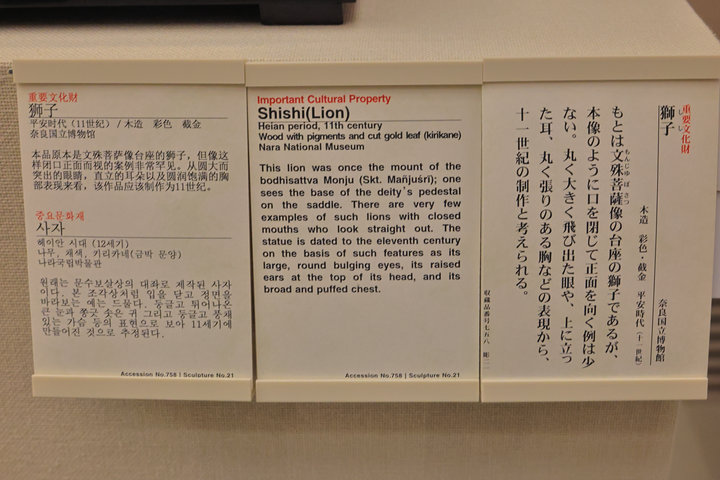 重要文化財
狮子
平安时代(11世纪) / 木造　彩色　截金
奈良国立博物馆
本品原本是文殊菩萨像台座的狮子，但像这
样闭口正面而视的案例非常罕见。从圆大而
突出的眼睛，直立的耳朵以及圆润饱满的胸
部表现来看，该作品应该制作为11世纪。
중요문화재
사자
헤이안 시대 (12세기)
나무, 채색, 키리카네(금박 문양)
나라국립박물관
원래는 문수보살상의 대좌로 제작된 사자
이다. 본 조각상처럼 입을 닫고 정면을
바라보는 예는 드물다. 둥글고 튀어나온
큰 눈과 쫑긋 솟은 귀 그리고 둥글고 풍채
있는 가슴 등의 표현으로 보아 11세기에
만들어진 것으로 추정된다.
Accession No.758 | Sculpture No.21
Important Cultural Property
Shishi(Lion)
Heian period, 11th century
Wood with pigments and cut gold leaf (kirikane)
Nara National Museum
This lion was once the mount of the
bodhisattva Monju (Skt. Mañjuśrī); one
sees the base of the deity's pedestal
on the saddle. There are very few
examples of such lions with closed
mouths who look straight out. The
statue is dated to the eleventh century
on the basis of such features as its
large, round bulging eyes, its raised
ears at the top of its head, and its
broad and puffed chest.
Accession No.758 | Sculpture No.21
重要文化財
獅子
しし
木造　彩色・截金　平安時代（十一世紀）
奈良国立博物館
もとは文殊菩薩像の台座の獅子であるが、
もんじゅぼさつ
本像のように口を閉じて正面を向く例は少
ない。丸く大きく飛び出た眼や、上に立っ
た耳、丸く張りのある胸などの表現から、
十一世紀の制作と考えられる。
収蔵品番号七五八　彫二一